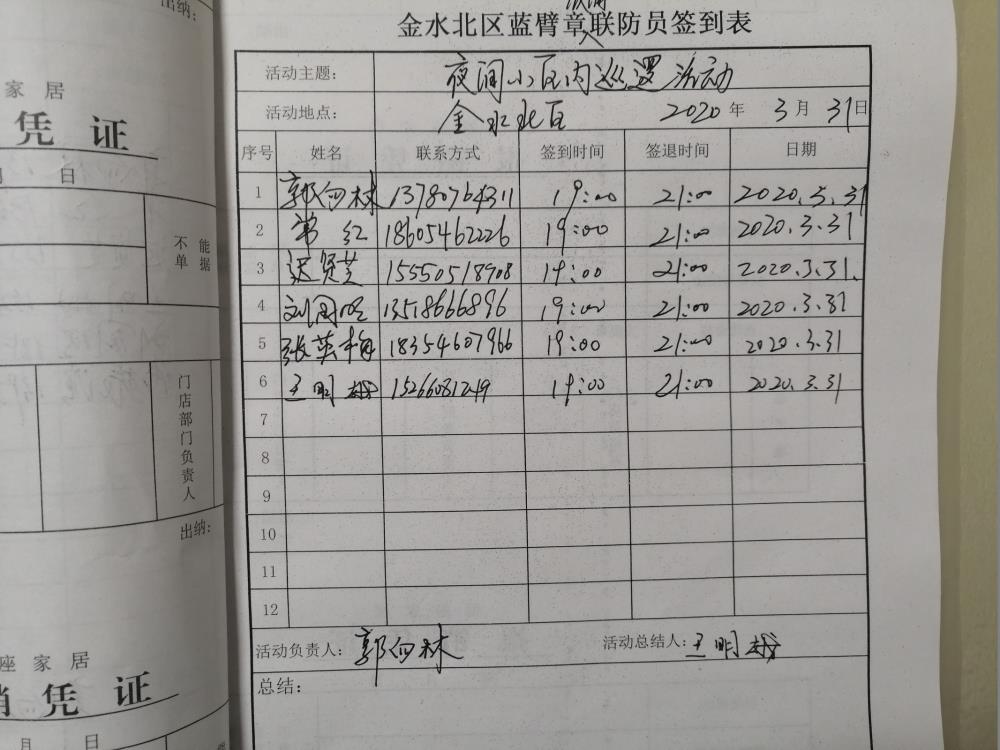 出纳:
家居
凭证
月 日
不能
单据
门店部门负责人
出纳:
座家居
销凭证
月 日
金水北区蓝臂章联防员签到表
活动主题: 夜间小区内巡逻活动
活动地点: 金水北区 2020年3月31日
序号 姓名 联系方式 签到时间 签退时间 日期
1 郭向林 13780764311 19:00 21:00 2020.3.31
2 常红 18605462226 19:00 21:00 2020.3.31
3 迟贤芝 15550518908 19:00 21:00 2020.3.31.
4 刘国 13518666896 19:00 21:00 2020.3.31
5 张英梅 18354607966 19:00 21:00 2020.3.31
6 王明 15266081249 19:00 21:00 2020.3.31
7
8
9
10
11
12
活动负责人: 郭向林 活动总结人: 王明
总结: